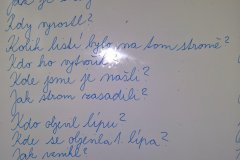 Kdy vyrostl?
Kolik listí bylo na tom stromě?
Kdo ho vytvořil?
Kde jsme je našli?
Jak strom zasadili?
Kdo objevil lípu?
Kde se objevila 1. lípa?
Jak vznikl?